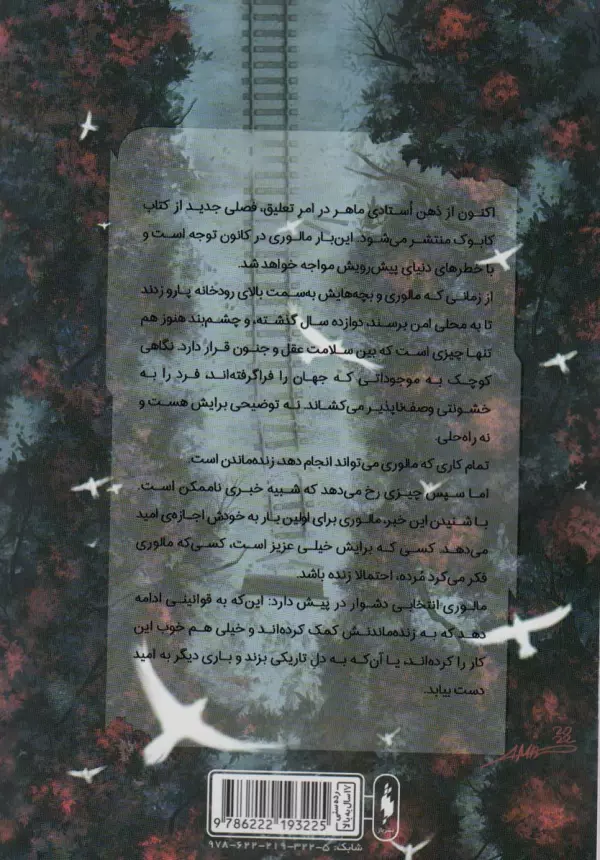 اکنون از ذهن اُستادی ماهر در امر تعلیق، فصلی جدید از کتاب
کابوک منتشر می‌شود. این‌بار مالوری در کانون توجه است و
با خطرهای دنیای پیش‌رویش مواجه خواهد شد.
از زمانی که مالوری و بچه‌هایش به‌سمت بالای رودخانه پارو زدند
تا به محلی امن برسند، دوازده سال گذشته، و چشم‌بند هنوز هم
تنها چیزی است که بین سلامت عقل و جنون قرار دارد. نگاهی
کوچک به موجوداتی که جهان را فراگرفته‌اند، فرد را به
خشونتی وصف‌ناپذیر می‌کشاند. نه توضیحی برایش هست و
نه راه‌حلی.
تمام کاری که مالوری می‌تواند انجام دهد زنده‌ماندن است.
اما سپس چیزی رخ می‌دهد که شبیه خبری ناممکن است.
با شنیدن این خبر، مالوری برای اولین بار به خودش اجازه‌ی امید
می‌دهد. کسی که برایش خیلی عزیز است، کسی‌که مالوری
فکر می‌کرد مُرده، احتمالا زنده باشد.
مالوری انتخابی دشوار در پیش دارد: این‌که به قوانینی ادامه
دهد که به زنده‌ماندنش کمک کرده‌اند و خیلی هم خوب این
کار را کرده‌اند، یا آن‌که به دلِ تاریکی بزند و باری دیگر به امید
دست بیابد.
رده‌سنی
۱۷سال به بالا
9 786222 193225
شابک: ۹۷۸-۶۲۲-۲۱۹-۳۲۲-۵